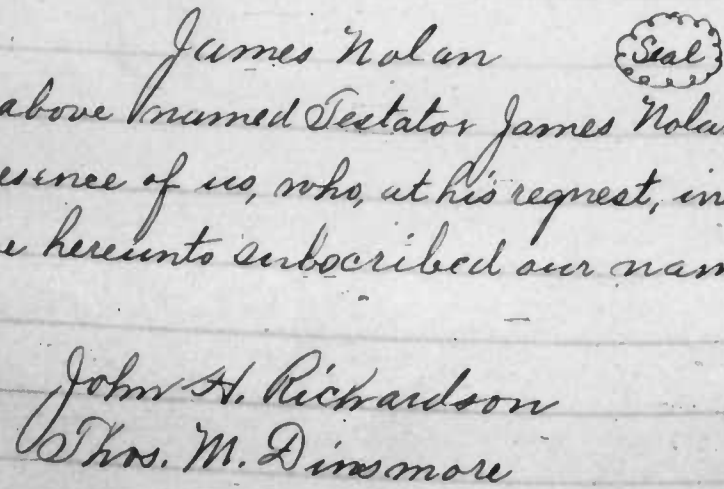 James Nolan Seal
above named Testator James Nolan
esence of us, who, at his request, in
e hereunto subscribed our nam
John H. Richardson
Thos. M. Dinsmore